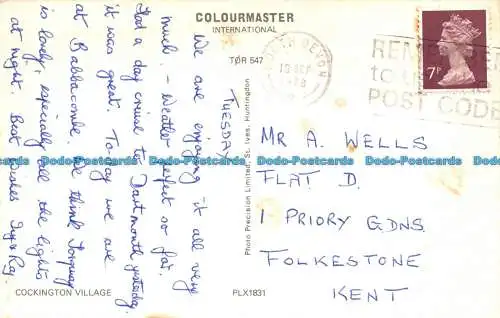 COLOURMASTER
INTERNATIONAL
TOR 547
TUESDAY
We are enjoying it all very
much. - Weather perfect so far.
Had a day cruise to Dartmouth yesterday
it was great. Today we are
at Babbacombe. We think Torquay
is lovely, especially all the lights
at night. Best Wishes Ray.
COCKINGTON VILLAGE
PLX1831
Photo Precision Limited, St. Ives, Huntingdon
DEVON
REMEMBER
to USE THE
POST CODE
7P
MR A. WELLS
FLAT D.
1 PRIORY GDNS.
FOLKESTONE
KENT
Dodo-Postcards Dodo-Postcards Dodo-Postcards Dodo-Postcards Dodo-Postcards